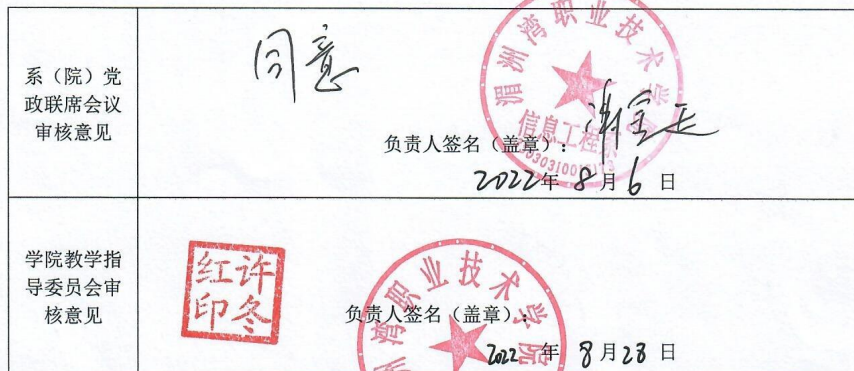 系（院）党
政联席会议
审核意见
同意
湄洲湾职业技术学院
信息工程系
负责人签名（盖章）：
2022年 8月 6 日
学院教学指
导委员会审
核意见
许冬
红印
湄洲湾职业技术学院
负责人签名（盖章）：
2022 年 8月28 日